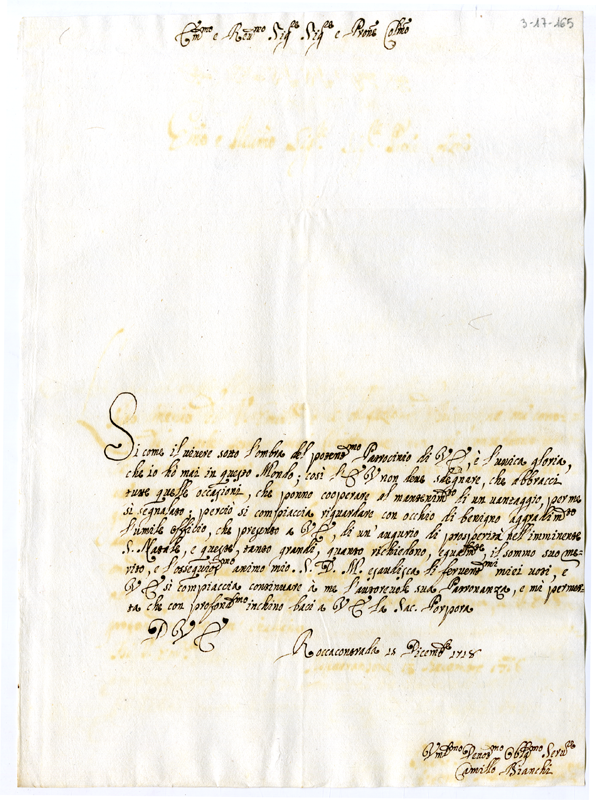 3-17-165
Em.mo e Rev.mo Sig.re Sig.re e Prone Colmo
Si come il vivere sotto l'ombra del poten.mo Patrocinio di V E, è l'unica gloria,
che io hò mai in questo Mondo, così l'E V non deve sdegnare, che abbracci
tutte quelle occasioni, che ponno cooperare al mantenim.to di un vantaggio, per me
sì segnalato; perciò si compiaccia riguardare con occhio di benigno aggradim.to
l'umile officio, che presento a V E, di un'augurio di prosperità nell'imminente
S. Natale, e queste, tanto grandi, quanto richiedono, equalm.te, il sommo suo me-
rito, e l'ossequios.mo animo mio. S. D. M. esaudisca li ferven.mi miei voti, e
V E si compiaccia continuare à me l'autorevole sua Padronanza, e mi permet-
ta che con profond.mo inchino baci a V E la Sac. Porpora
D V E
Roccacontrada 15 Dicemb.e 1718
Vm.mo Devot.mo Obl.mo Serv.re
Camillo Bianchi